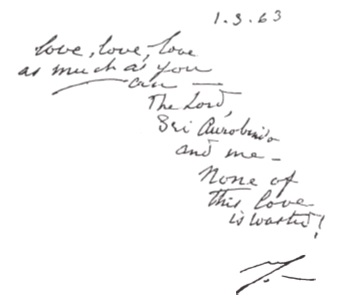 1.3.63
love, love, love
as much as you
can —
The Lord,
Sri Aurobindo
and me —
None of
this love
is wasted!